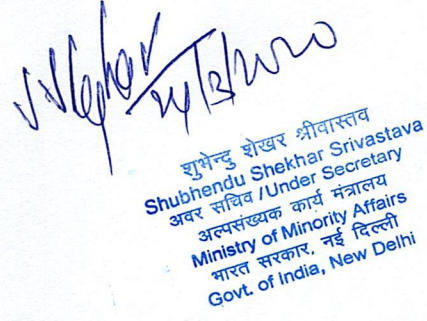 24/3/2020
शुभेन्दु शेखर श्रीवास्तव
Shubhendu Shekhar Srivastava
अवर सचिव /Under Secretary
अल्पसंख्यक कार्य मंत्रालय
Ministry of Minority Affairs
भारत सरकार, नई दिल्ली
Govt. of India, New Delhi